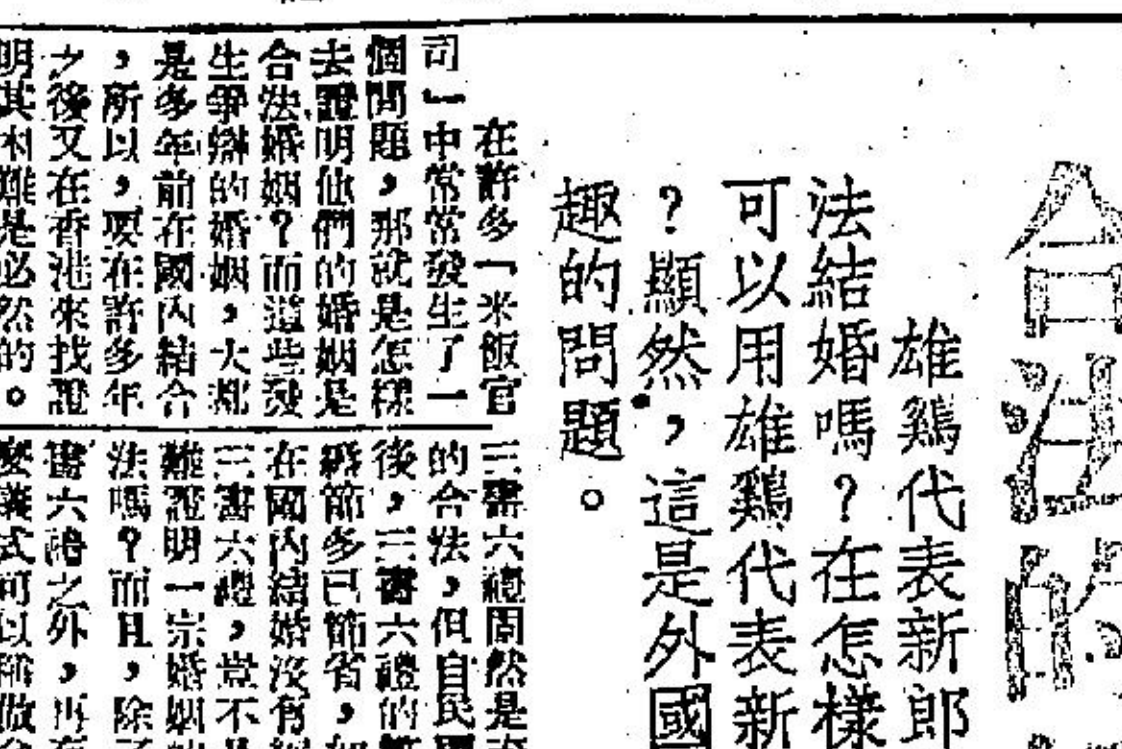 合法的
雄鷄代表新郎
法結婚嗎？在怎樣
可以用雄鷄代表新
？顯然，這是外國
趣的問題。
在許多「米飯官
司」中常常發生了一
個問題，那就是怎樣
去證明他們的婚姻是
合法婚姻？而這些發
生爭辯的婚姻，大都
是多年前在國內結合
，所以，要在許多年
之後又在香港來找證
明其困難是必然的。
三書六禮固然是
的合法，但自民國
後，三書六禮的
節多已節省，如
在國內結婚沒有
三書六禮，豈不
難證明一宗婚姻
法嗎？而且，除了
書六禮之外，再有
麼儀式可以稱做